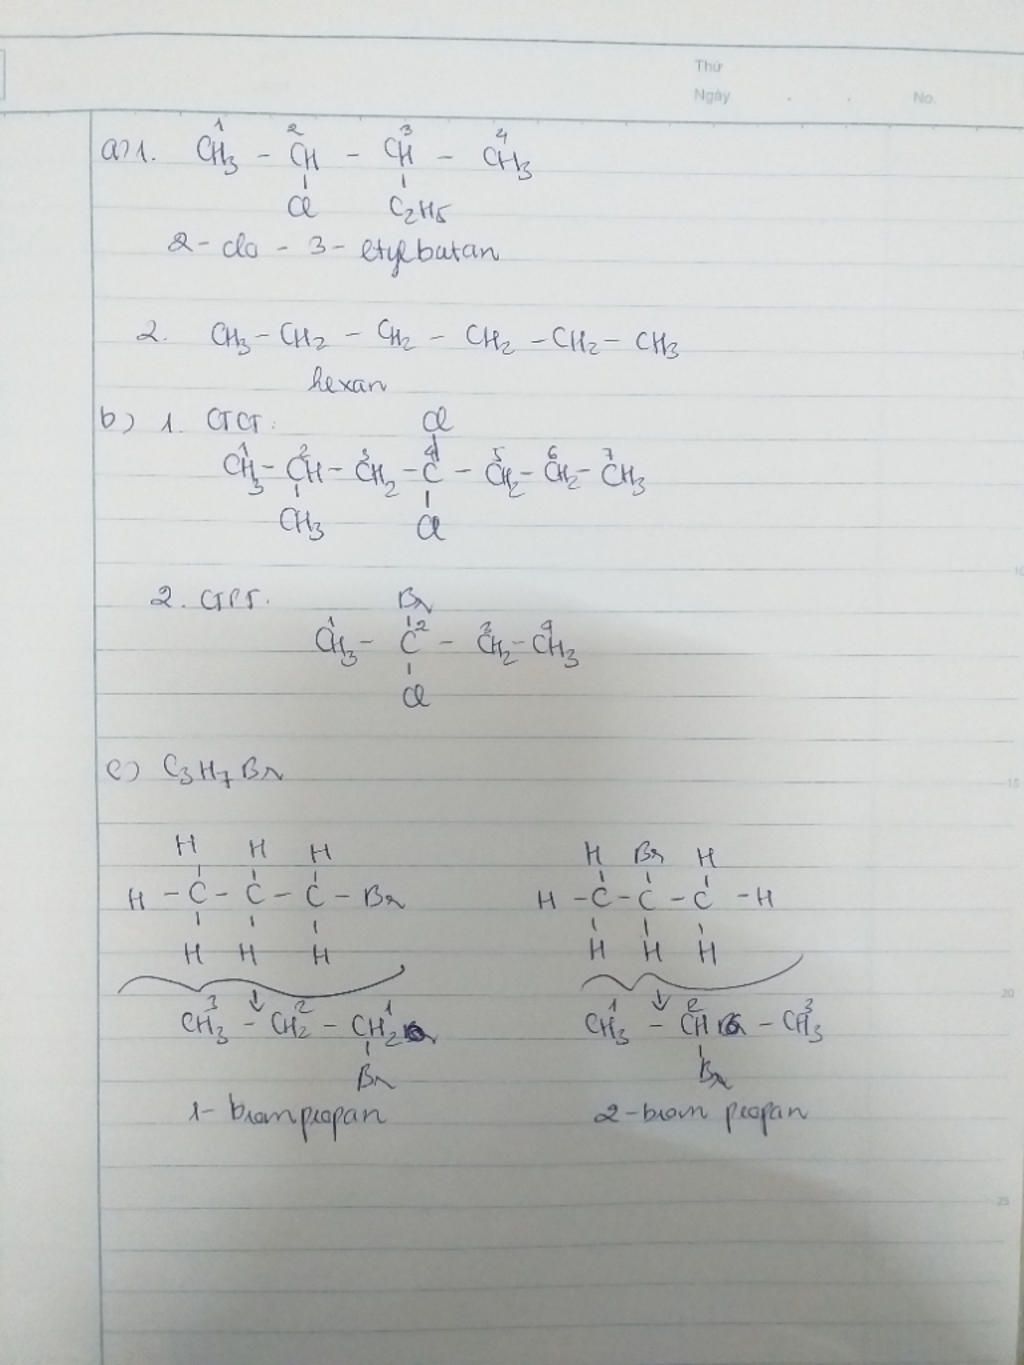 Thứ
Ngày . . No.
a) 1. CH3 - CH - CH - CH3
1 2 3 4
Cl C2H5
2 - clo - 3 - etylbutan
2. CH3 - CH2 - CH2 - CH2 - CH2 - CH3
hexan
b) 1. CTCT: Cl
1 2 3 4 5 6 7
CH3 - CH - CH2 - C - CH2 - CH2 - CH3
CH3 Cl
2. CTCT. Br
1 2 3 4
CH3 - C - CH2 - CH3
Cl
c) C3H7Br
H H H
H - C - C - C - Br
H H H
3 2 1
CH3 - CH2 - CH2
Br
1 - brompropan
H Br H
H - C - C - C - H
H H H
1 2 3
CH3 - CH - CH3
Br
2 - brom propan
10
15
20
25